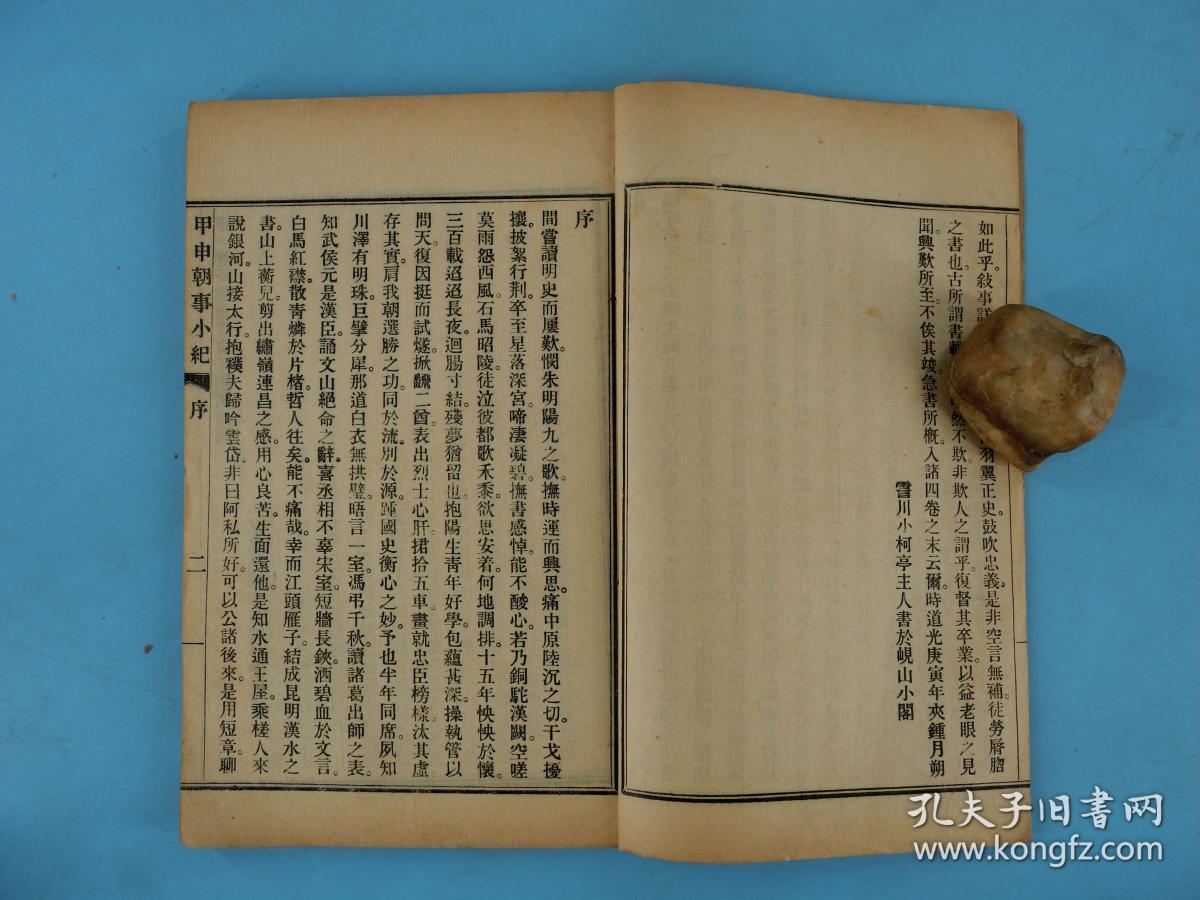 如此乎。敍事詳
羽翼正史。鼓吹忠義。是非空言無補。徒勞脣脗
之書也。古所謂書
然不欺。非欺人之謂乎。復督其卒業。以益老眼之見
聞。興歎所至。不俟其竣。急書所槪。入諸四卷之末云爾。時道光庚寅年夾鍾月朔
霅川小柯亭主人書於峴山小閣
序
間嘗讀明史而屢歎。憫朱明陽九之歌。撫時運而興思。痛中原陸沉之切。干戈擾
攘。披絮行荆。卒至星落深宮。啼淒凝碧。撫書感悼。能不酸心。若乃銅駝漢闕。空嗟
莫雨怨西風。石馬昭陵。徒泣彼都歌禾黍。欲思安着。何地調排。十五年怏怏於懷。
三百載迢迢長夜。迴腸寸結。殘夢猶留也。抱陽生靑年好學。包蘊甚深。操執管以
問天。復因挺而試燧。掀飜二酋。表出烈士心肝。捃拾五車。畫就忠臣榜樣。汰其虛
存其實。肩我朝選勝之功。同於流。別於源。踵國史衡心之妙。予也半年同席。夙知
川澤有明珠。巨擘分犀。那道白衣無拱璧。晤言一室。馮弔千秋。讀諸葛出師之表。
知武侯元是漢臣。誦文山絕命之辭。喜丞相不辜宋室。短牆長鋏。洒碧血於文言。
白馬紅襟。散靑燐於片楮。哲人往矣。能不痛哉。幸而江頭雁子。結成昆明漢水之
書。山上蘅兒。剪出繡嶺連昌之感。用心良苦。生面還他。是知水通王屋。乘槎人來
說銀河。山接太行。抱襆夫歸吟雲岱。非曰阿私所好。可以公諸後來。是用短章。聊
甲申朝事小紀
序
二
孔夫子旧书网
www.kongfz.com